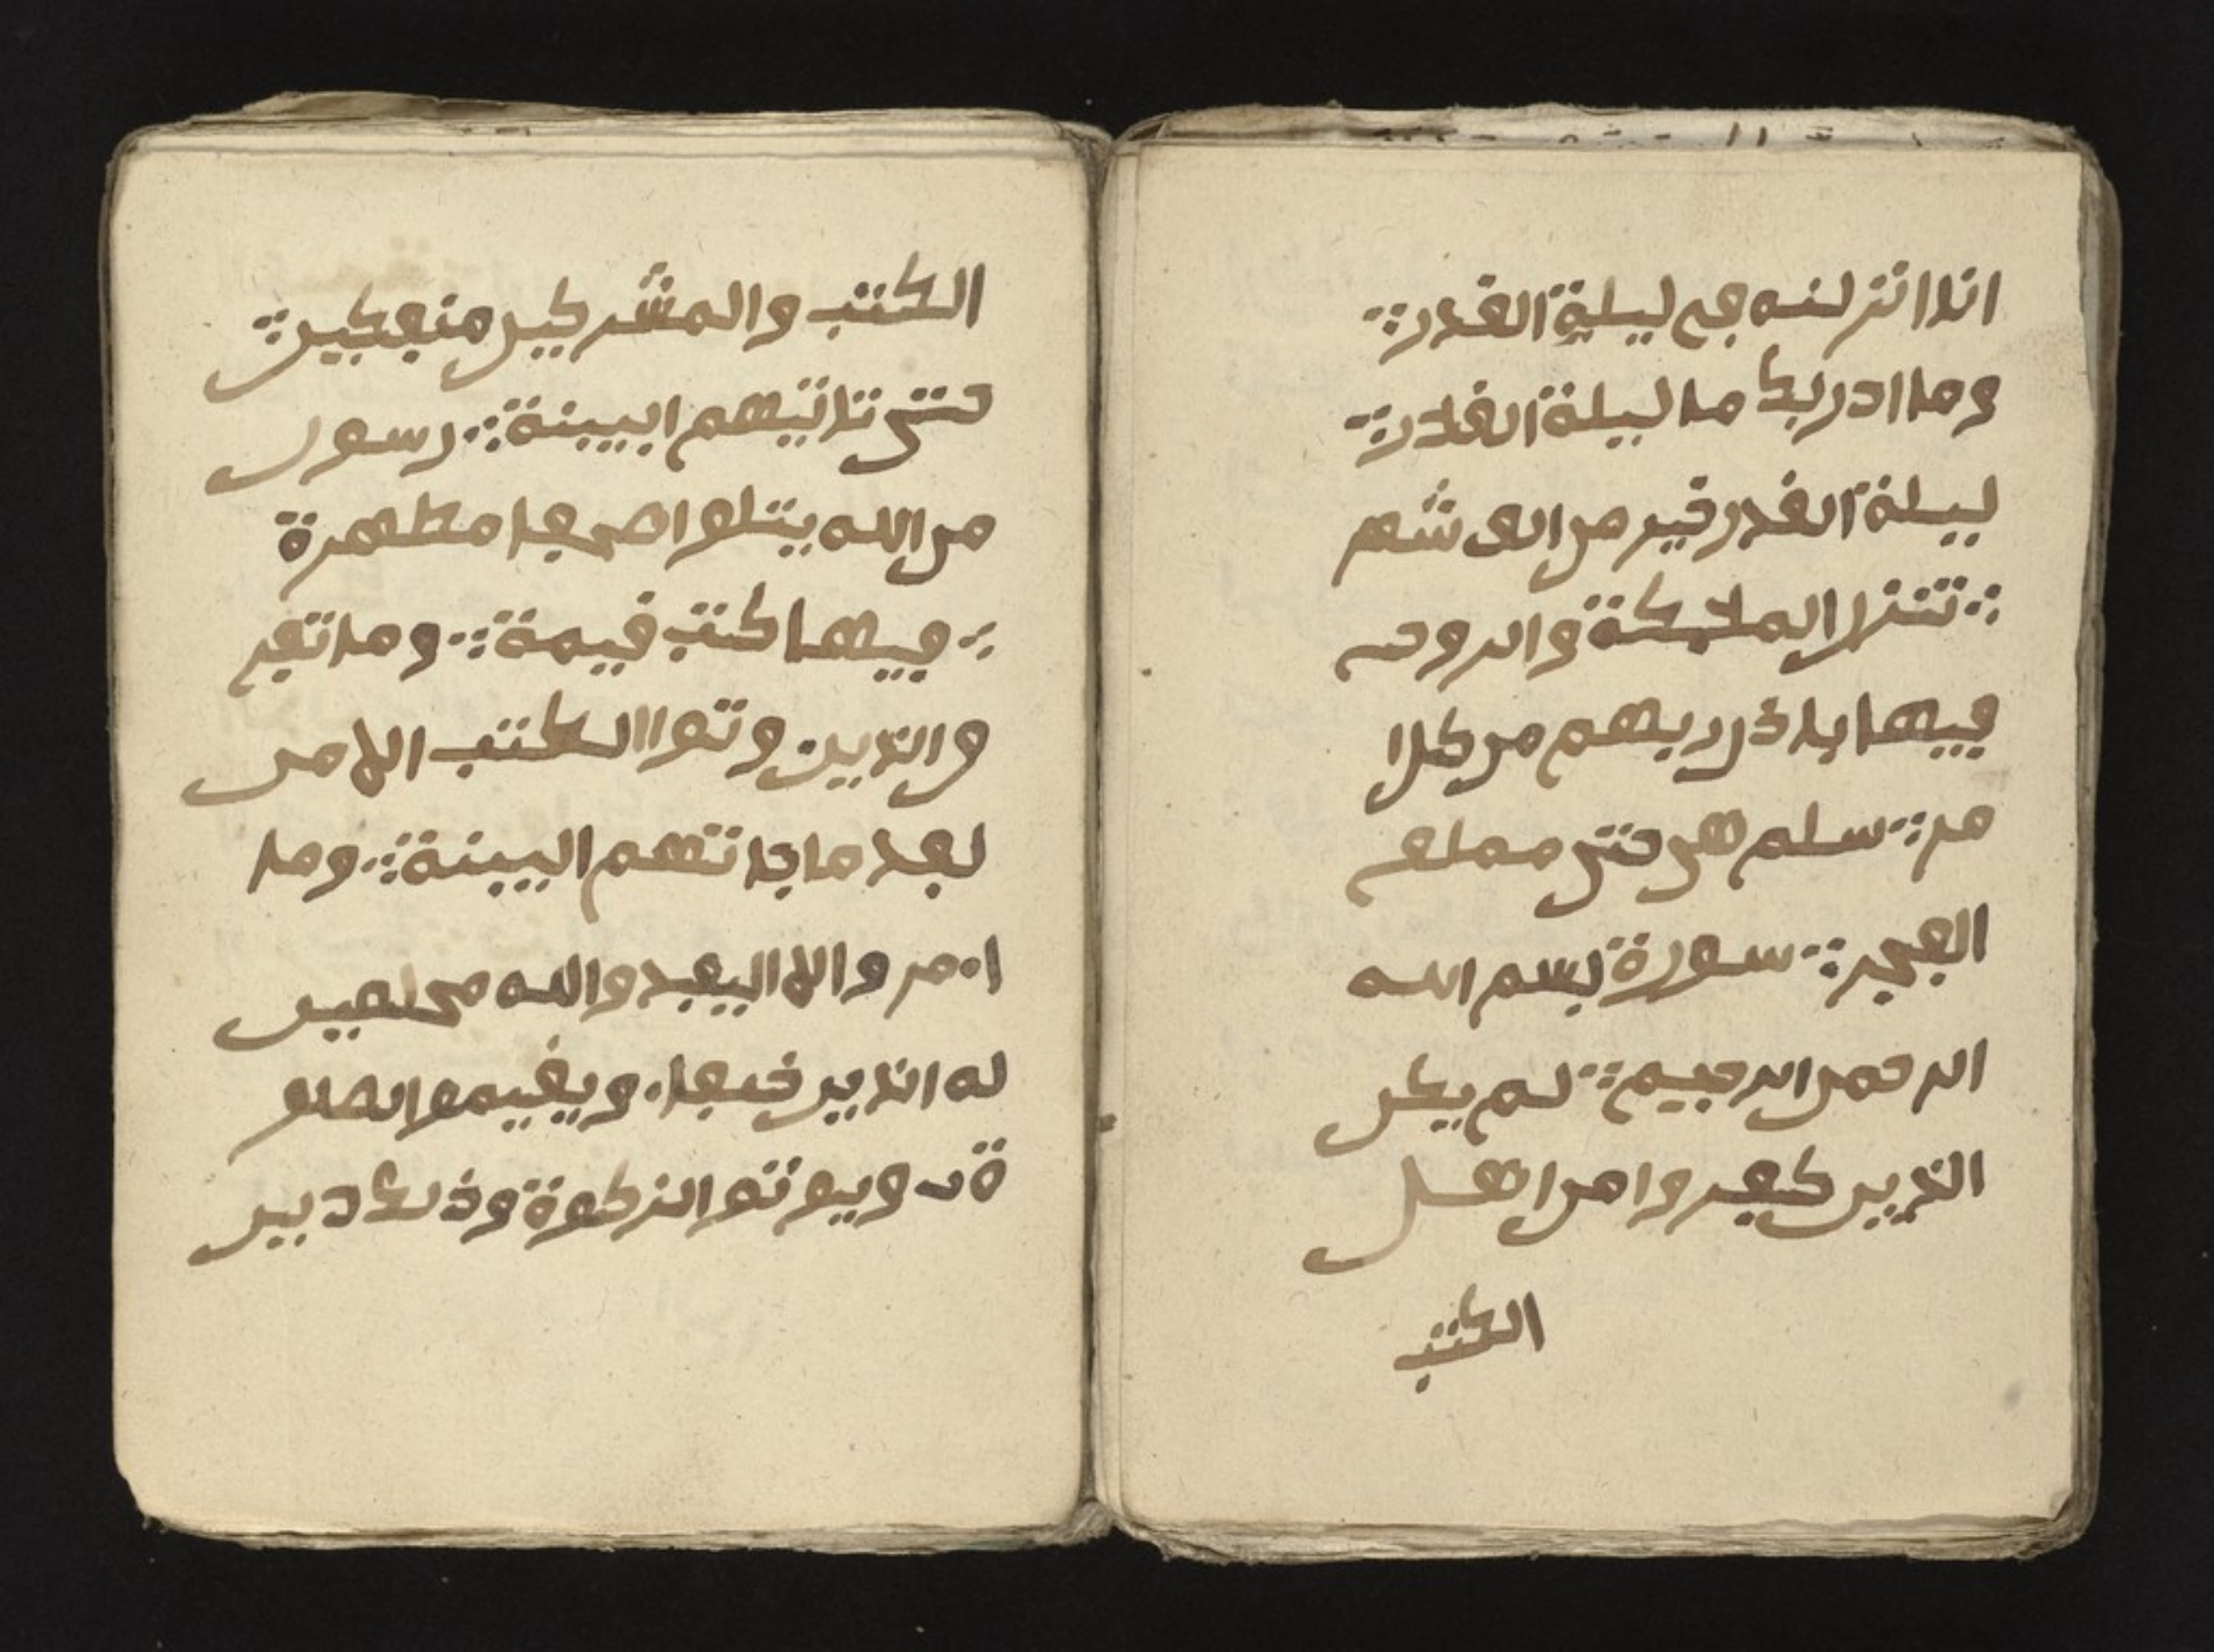 انا انزلنه في ليلة القدر
وما ادريك ما ليلة القدر
ليلة القدر خير من الف شهر
تنزل المليكة والروح
فيها باذن ربهم من كل ا
مر سلم هي حتى مملع
الفجر سورة بسم الله
الرحمن الرحيم لم يكن
الذين كفروا من اهل
الكتب
الكتب والمشركين منفكين
حتى تاتيهم ابيبنة رسول
من الله يتلوا صحفا مطهرة
فيها كتب قيمة وما تفر
ق الذين وتوا الكتب الا من
بعد ما جاتهم البينة وما
امروا الا اليعبدوا الله مخلصين
له الذين حنفا ويقيموا الصلو
ة ويوتوا الزكوة وذلك دين